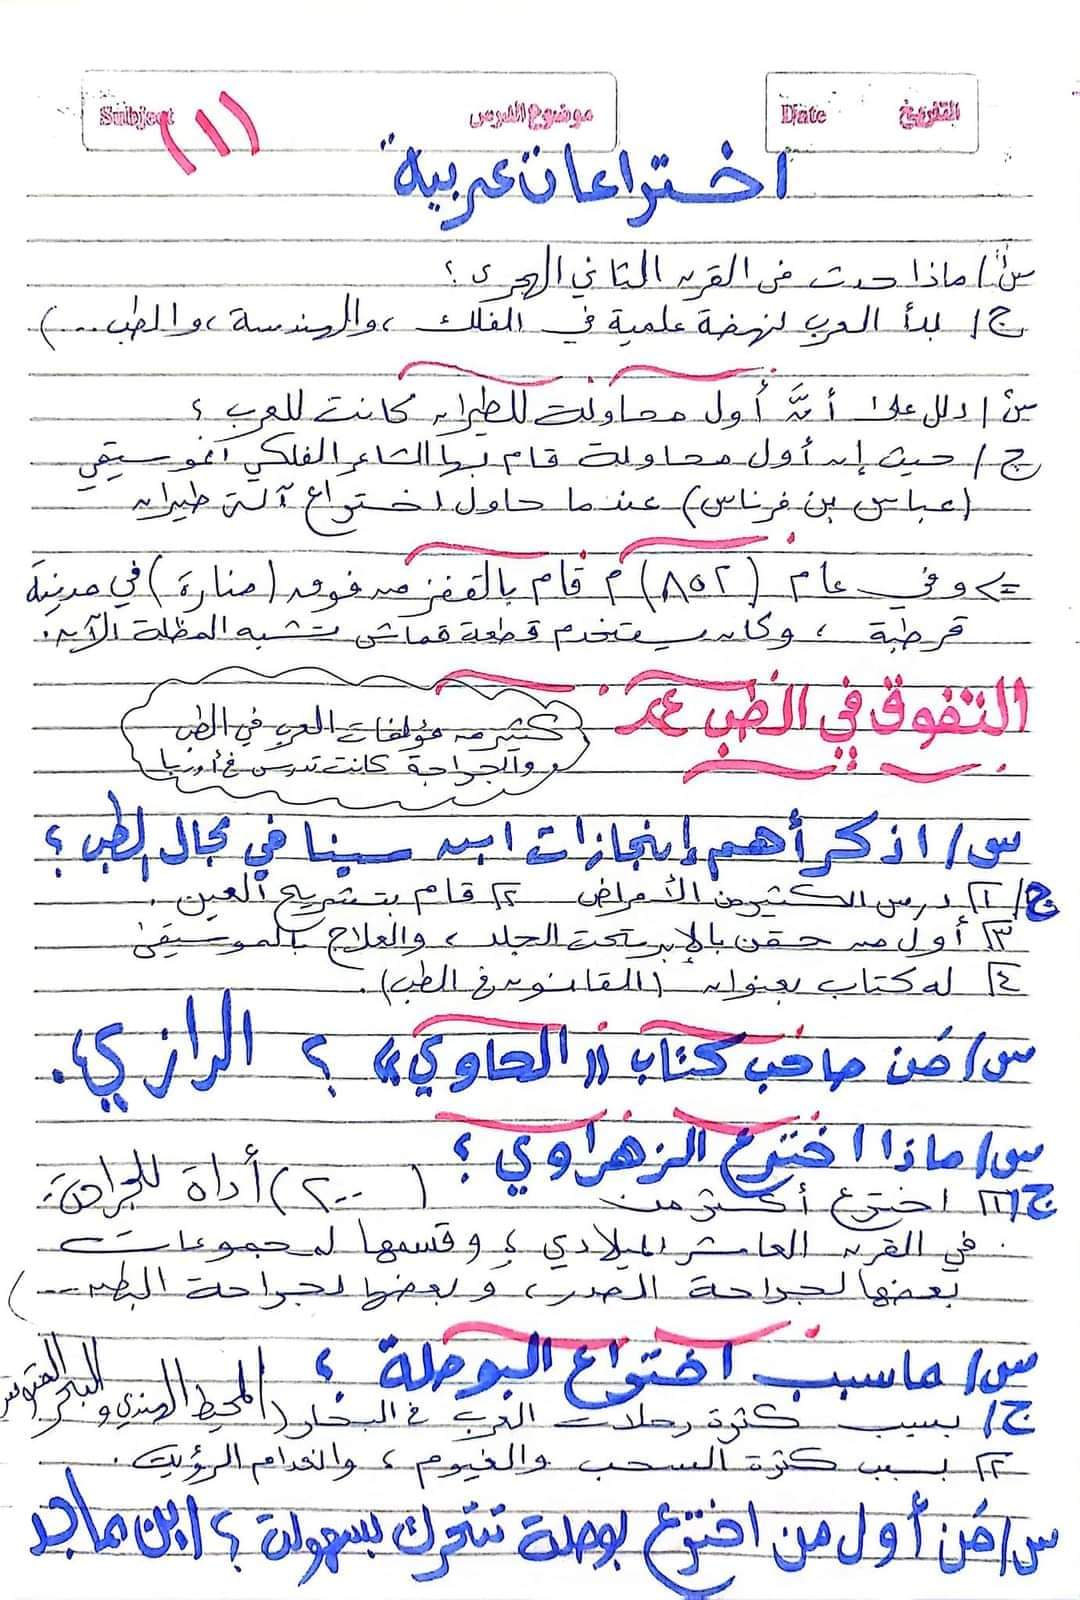 التاريخ Date
موضوع الدرس Subject
(١)
اختراعات عربية
س١/ ماذا حدث في القرن الثاني الهجري ؟
ج/ بدأ العرب نهضة علمية في الفلك ، والهندسة ، والطب ...)
س٢/ دلل على أنَّ أول محاولة للطيران كانت للعرب ؟
ج/ حيث إن أول محاولة قام بها الشاعر الفلكي الموسيقي
(عباس بن فرناس) عندما حاول اختراع آلة طيران
=> وفي عام (٨٥٢) م قام بالقفز من فوق (منارة) في مدينة
قرطبة ، وكان يستخدم قطعة قماش تشبه المظلة الآن.
التفوق في الطب
كثير من مؤلفات العرب في الطب
والجراحة كانت تدرس في أوربا
س/ اذكر أهم إنجازات ابن سينا في مجال الطب ؟
ج/ ١ درس الكثير من الأمراض ٢ قام بتشريح العين .
٣ أول من حقن بالإبر تحت الجلد ، والعلاج بالموسيقى
٤ له كتاب بعنوان (القانون في الطب) .
س/ مَن صاحب كتاب «الحاوي» ؟ الرازي .
س/ ماذا اخترع الزهراوي ؟
ج/ ١ اخترع أكثر من (٢٠٠) أداة للجراحة
في القرن العاشر الميلادي ، وقسمها لمجموعات
بعضها لجراحة الصدر ، وبعضها لجراحة البطن ...)
س/ ما سبب اختراع البوصلة ؟
ج/ بسبب كثرة رحلات العرب في البحار (المحيط الهندي والبحر المتوسط
٢ بسبب كثرة السحب والغيوم ، وانعدام الرؤية .
س/ مَن أول من اخترع بوصلة تتحرك بسهولة ؟ ابن ماجد